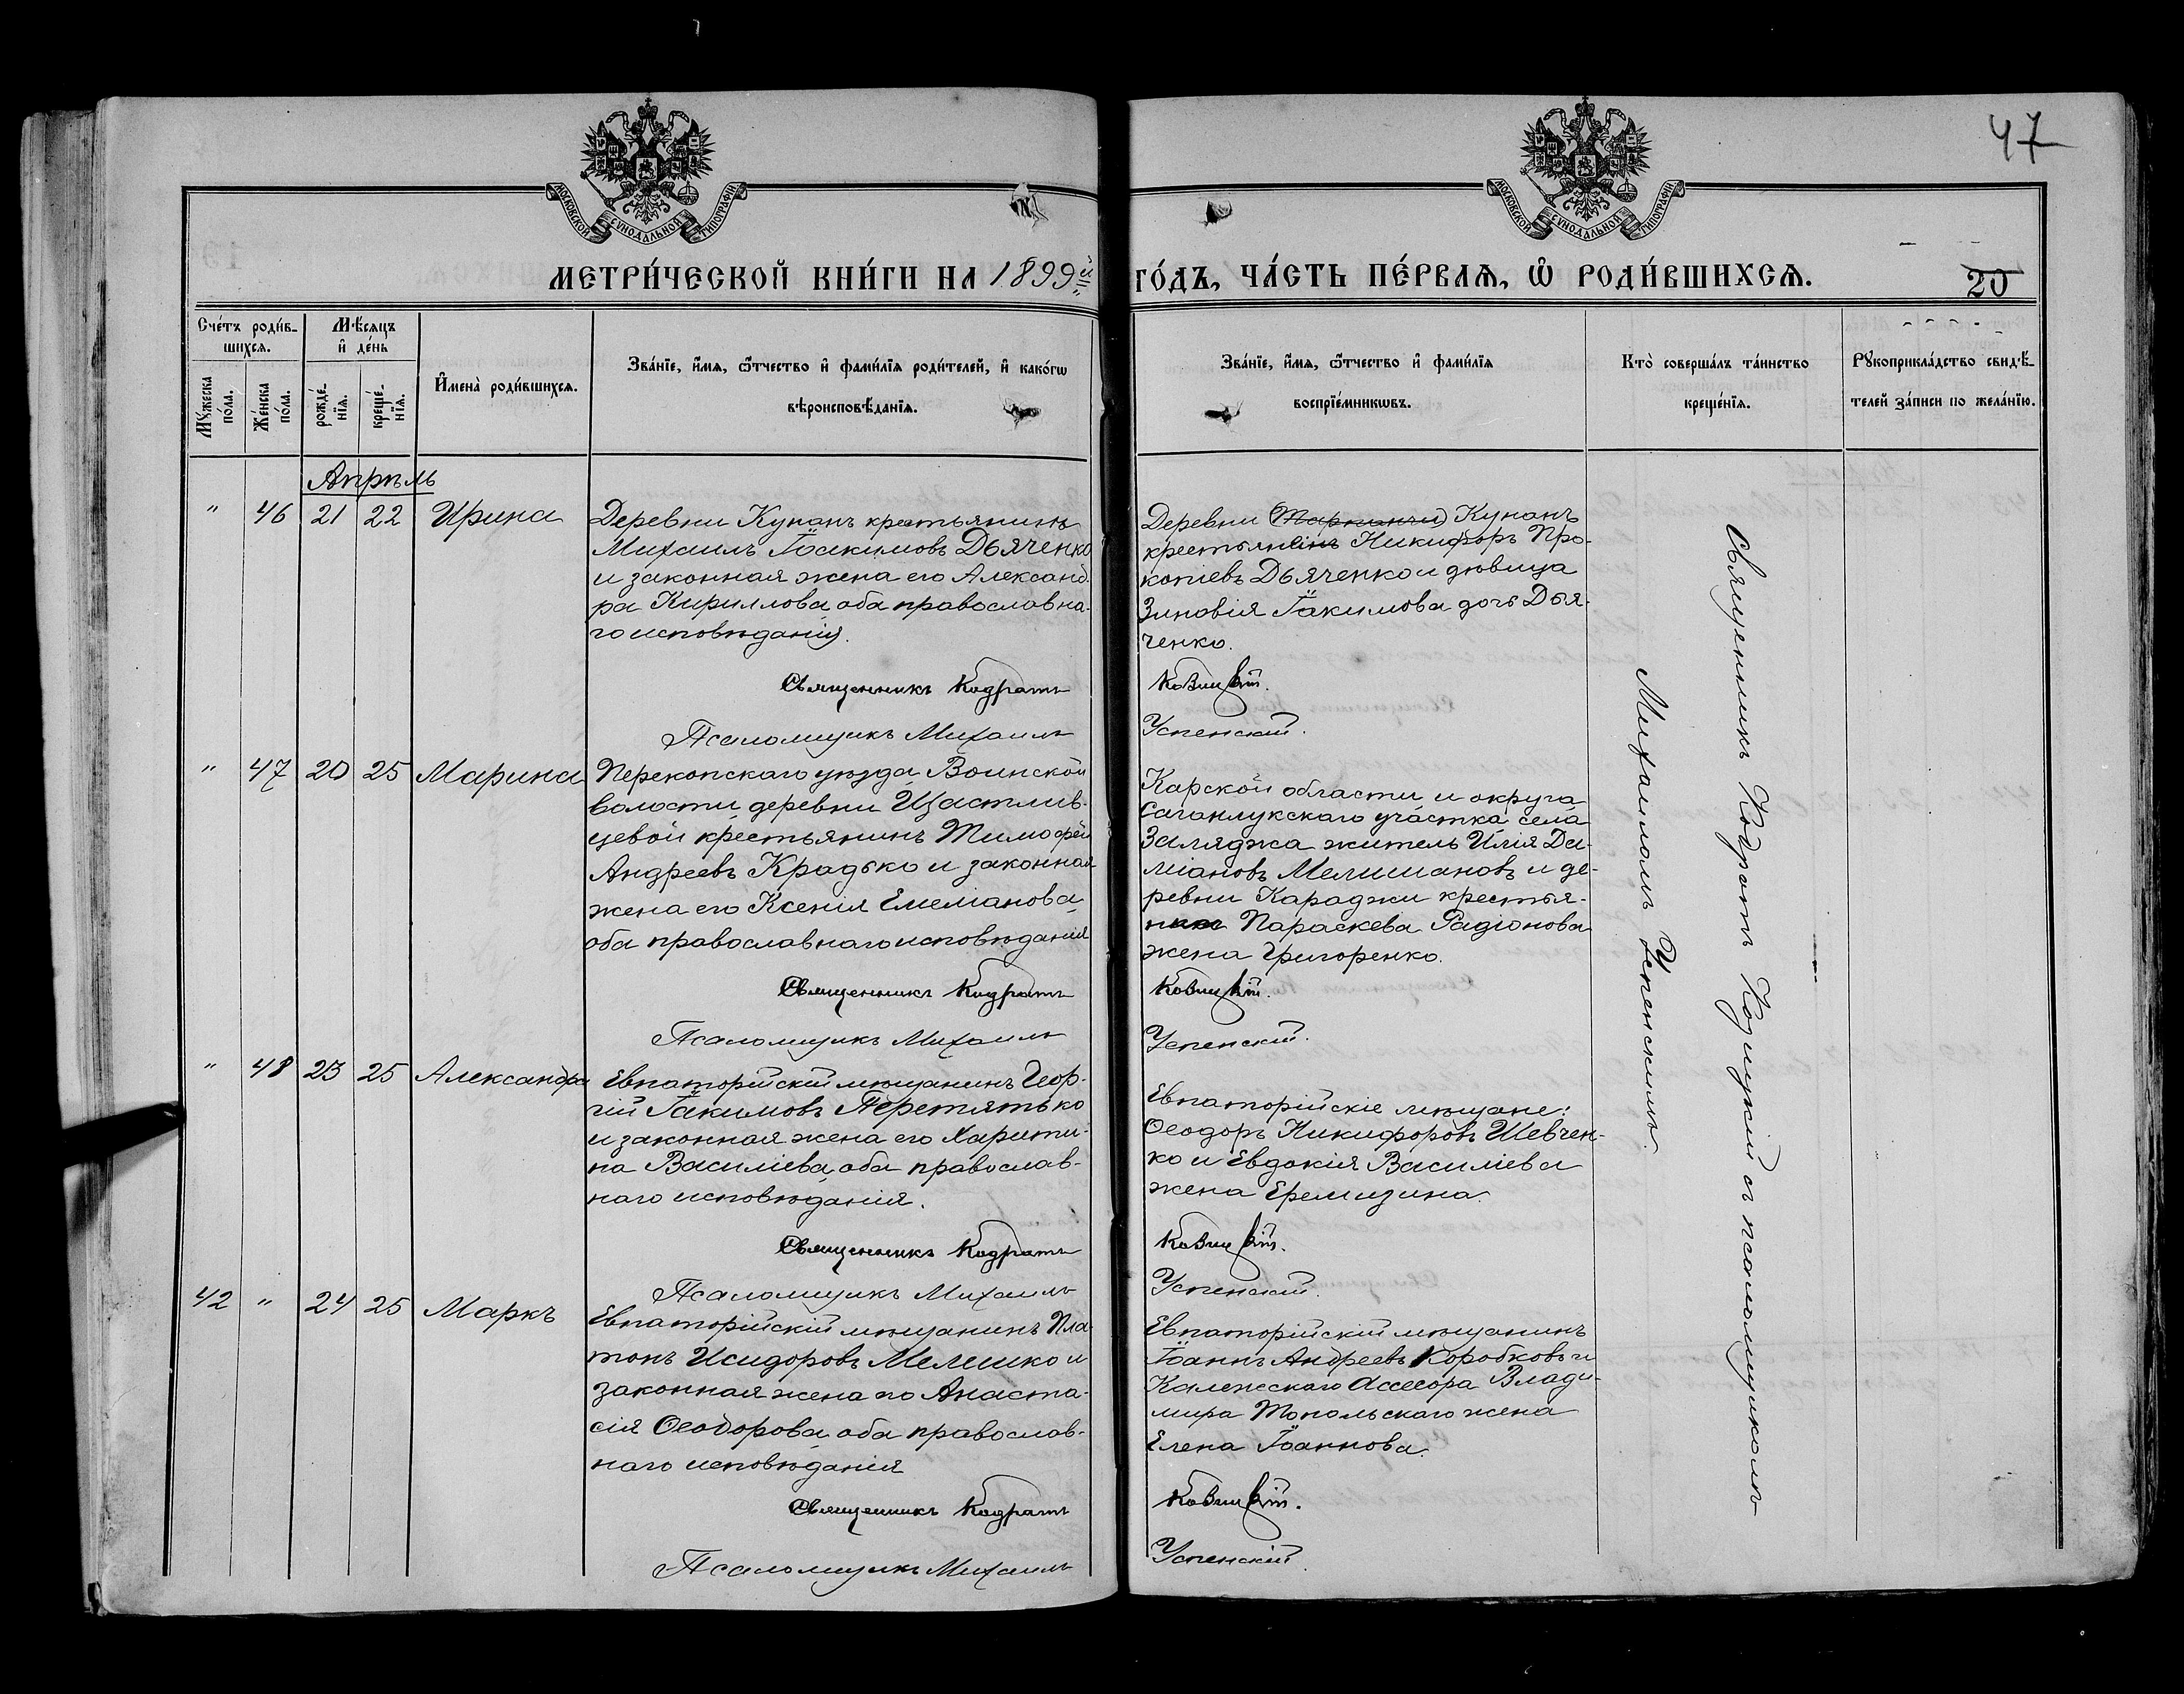 47
МОСКОВСКОЙ СѴНОДАЛЬНОЙ ТИПОГРАФІИ
МОСКОВСКОЙ СѴНОДАЛЬНОЙ ТИПОГРАФІИ
МЕТРИ́ЧЕСКОЙ КНИ́ГИ НА 1899й ГО́ДЪ, ЧА́СТЬ ПЕ́РВАѦ, Ѿ РОДИ́ВШИХСѦ.
20
Сче́тъ роди́в-
шихсѧ.
Мꙋжеска по́ла.
Же́нска по́ла.
Мѣ́сѧцъ
и҆ де́нь
рожде́-
нїѧ.
креще́-
нїѧ.
И҆мена̀ роди́вшихсѧ.
Зва́нїе, и҆́мѧ, ѻ҆́тчество и҆ фами́лїѧ роди́телей, и҆ како́гѡ
вѣроисповѣ́данїѧ.
Зва́нїе, и҆́мѧ, ѻ҆́тчество и҆ фами́лїѧ
воспрїе́мникѡвъ.
Кто̀ соверша́лъ та́инство
креще́нїѧ.
Рꙋкоприкла́дство свидѣ́-
телей за́писи по жела́нїю.
Апрѣль
" 46 21 22 Ирина
Деревни Кунанъ крестьянинъ
Михаилъ Іоакимовъ Дьяченко
и законная жена его Александ-
ра Кириллова, оба православна-
го исповѣданія.
Священникъ Кодратъ
Псаломщикъ Михаилъ
Деревни Кунанъ
крестьянинъ Никифоръ Про-
копіевъ Дьяченко и дѣвица
Зиновія Іакимова дочь Дья-
ченко.
Успенскій.
" 47 20 25 Марина
Перекопскаго уѣзда Воинской
волости, деревни Щастлив-
цевой крестьянинъ Тимофей
Андреевъ Крадько и законная
жена его Ксенія Емеліанова,
оба православнаго исповѣданія
Священникъ Кодратъ
Псаломщикъ Михаилъ
Карской области и округа
Саганлукскаго участка села
Заляджа житель Илія Да-
міановъ Мелишановъ и де-
ревни Караджи крестья-
нка Параскева Радіонова
жена Григоренко.
Успенскій.
" 48 23 25 Александра
Евпаторійскій мѣщанинъ Геор-
гій Іакимовъ Перетятько
и законная жена его Харити-
на Василіева, оба православ-
наго исповѣданія.
Священникъ Кодратъ
Псаломщикъ Михаилъ
Евпаторійскіе мѣщане:
Ѳеодоръ Никифоровъ Шевчен-
ко и Евдокія Василіева
жена Еремизина.
Успенскій.
42 " 24 25 Маркъ
Евпаторійскій мѣщанинъ Пла-
тонъ Исидоровъ Мелешко и
законная жена его Анаста-
сія Ѳеодорова, оба православ-
наго исповѣданія
Священникъ Кодратъ
Псаломщикъ Михаилъ
Евпаторійскій мѣщанинъ
Іоаннъ Андреевъ Коробковъ и
Калежскаго Ассесора Влади-
мира Топольскаго жена
Елена Іоаннова.
Успенскій
Священникъ Кодратъ съ псаломщикомъ
Михаиломъ Успенскимъ.